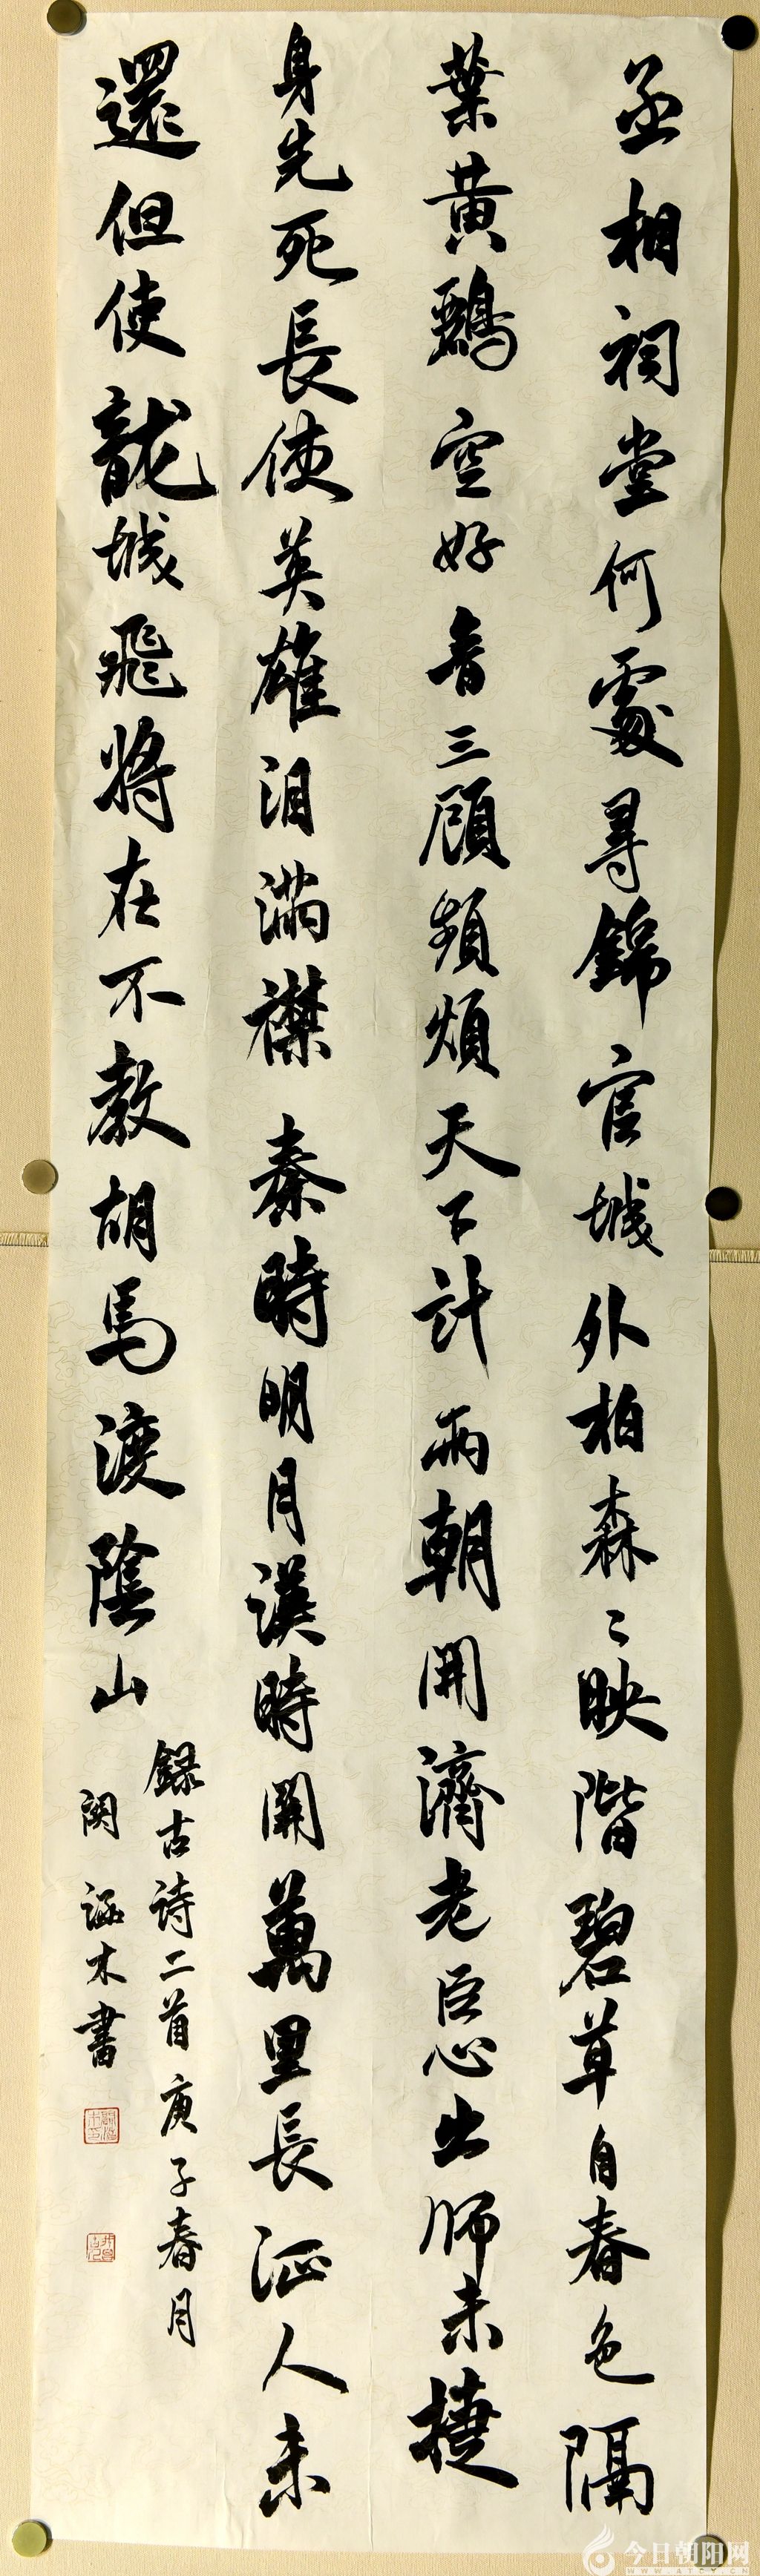 丞相祠堂何處尋錦官城外柏森〻映階碧草自春色隔
葉黃鸝空好音三顧頻煩天下計兩朝開濟老臣心出師未捷
身先死長使英雄泪滿襟秦時明月漢時關萬里長征人未
還但使龍城飛將在不教胡馬渡陰山
録古詩二首庚子春月
涵木書
今日朝阳网